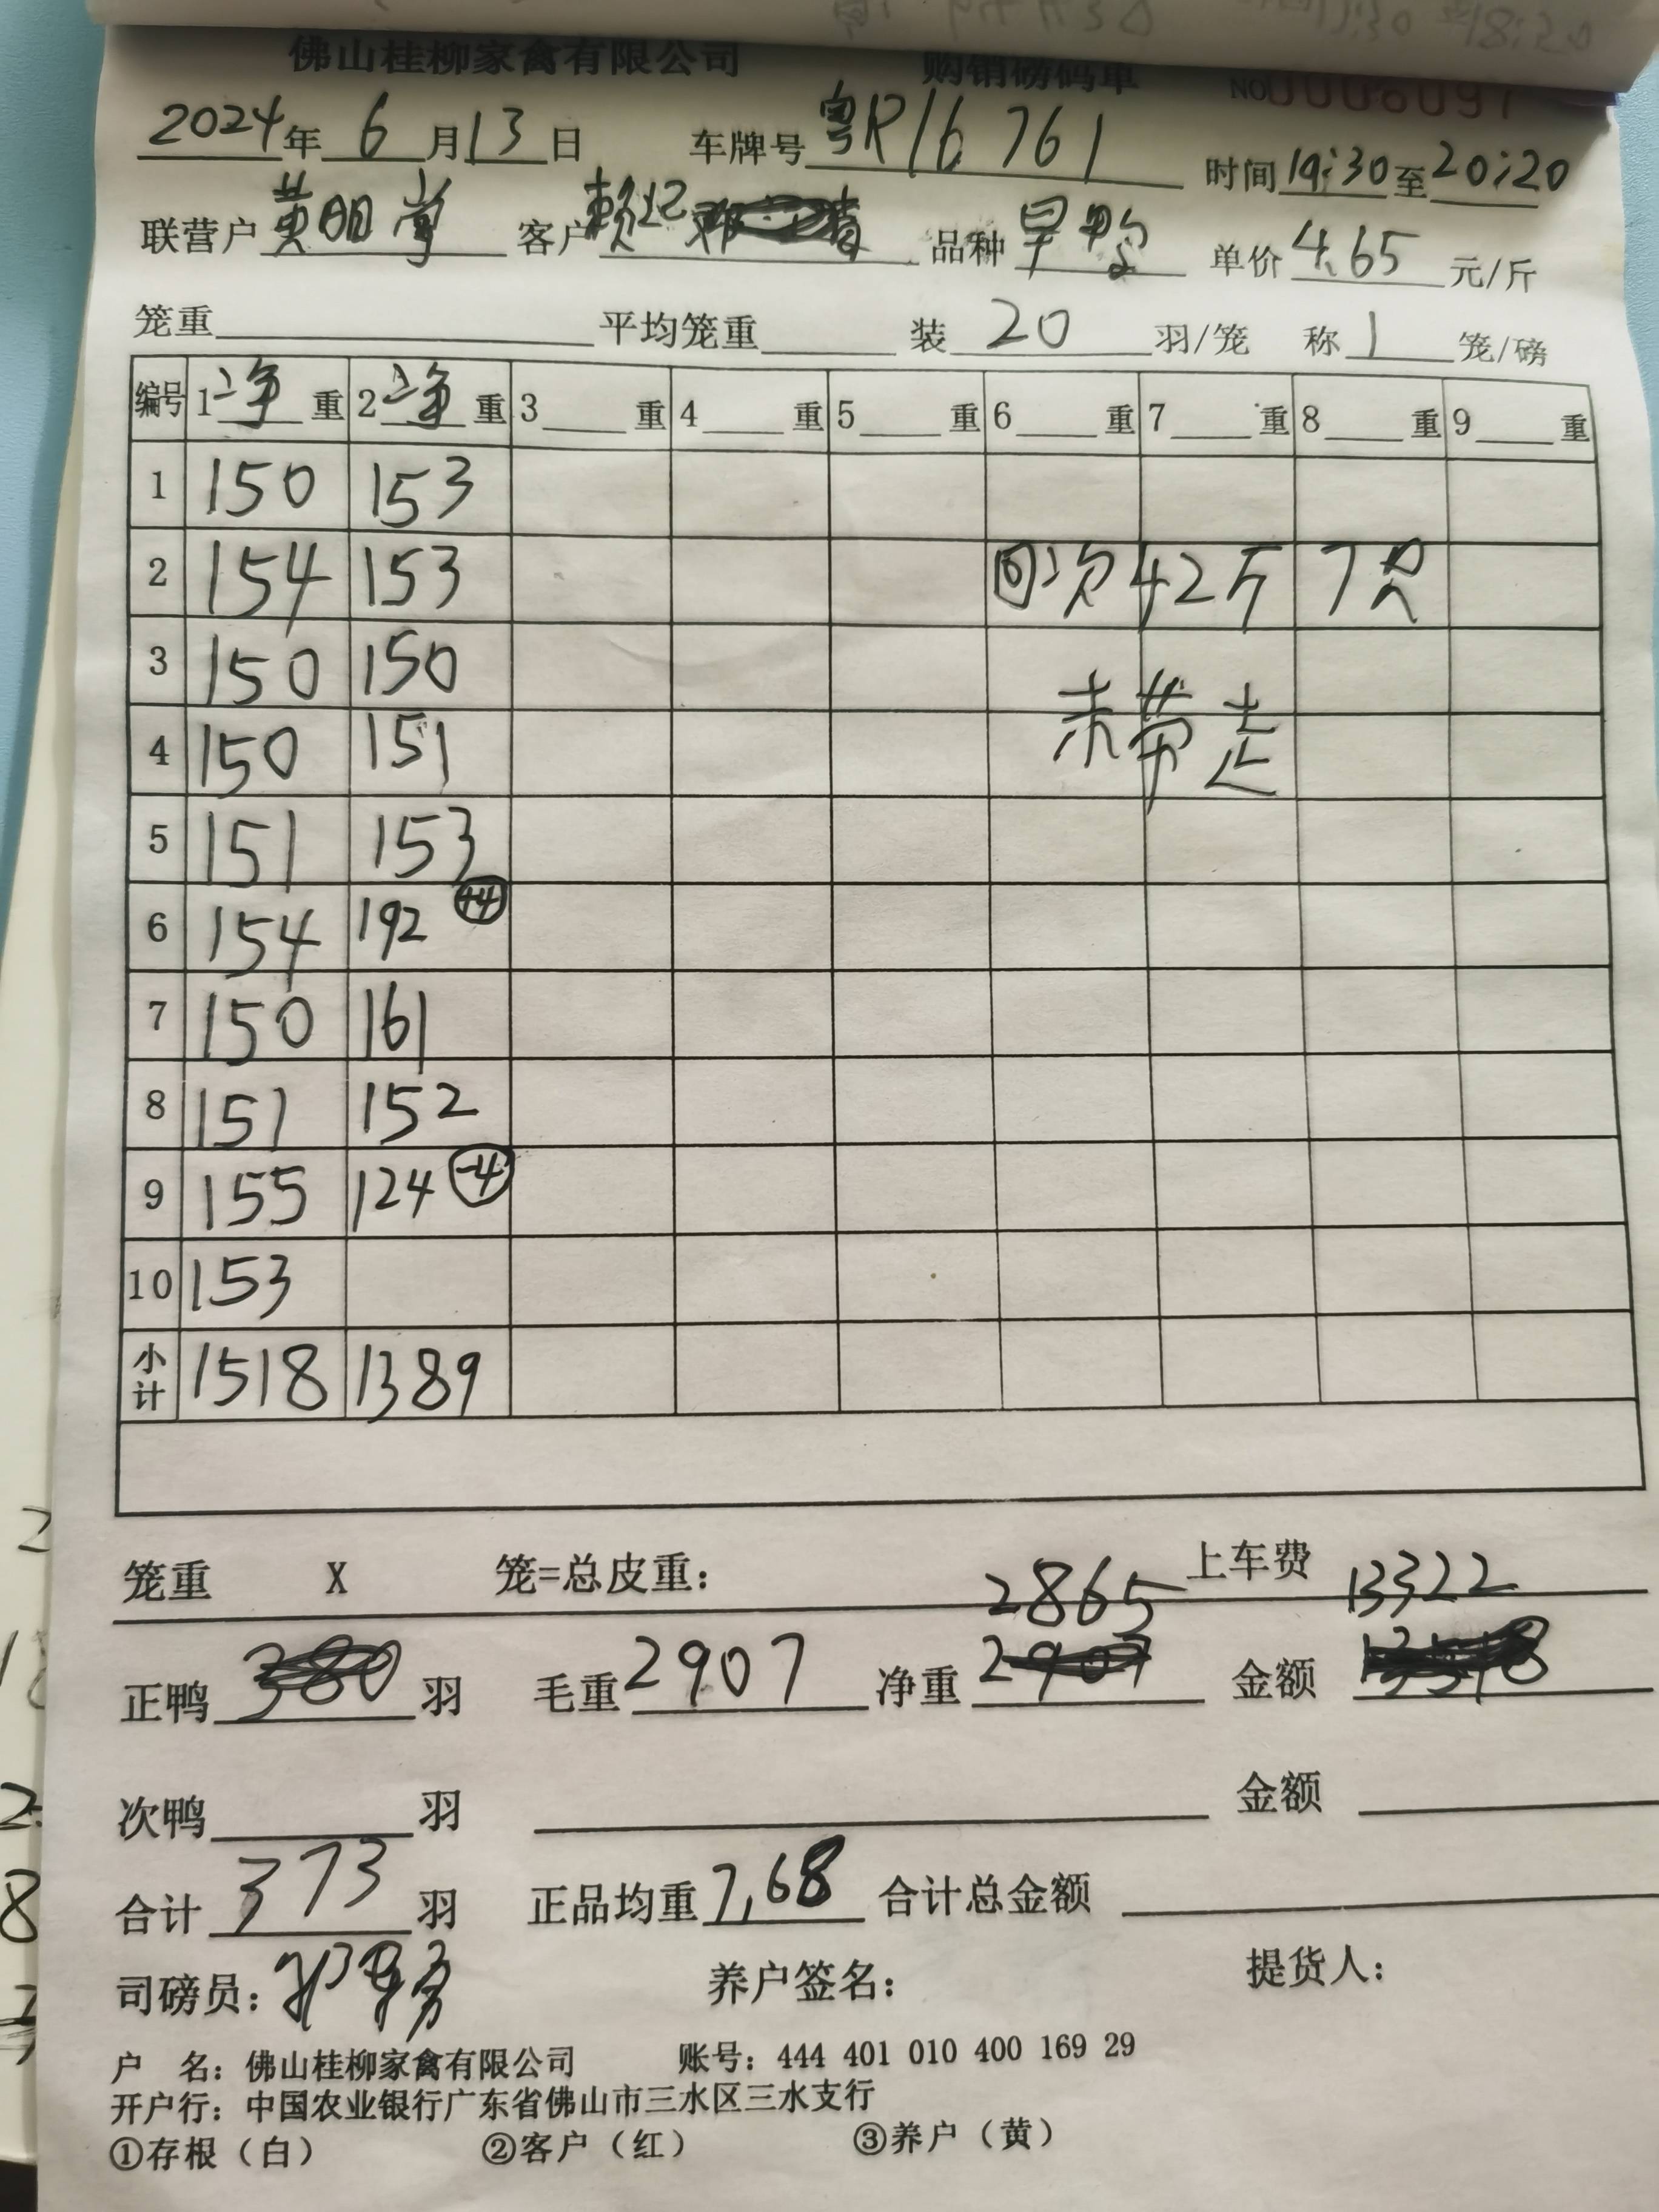 佛山桂柳家禽有限公司 购销磅码单 NO 0006097
2024年 6 月 13 日 车牌号 粤R16761 时间 19:30 至 20:20
联营户 黄明 客户 赖记 品种 旱鸭 单价 4.65 元/斤
笼重 平均笼重 装 20 羽/笼 称 1 笼/磅
编号 1 净 重 2 净 重 3 重 4 重 5 重 6 重 7 重 8 重 9 重
1 150 153
2 154 153 回次 42斤 7只
3 150 150
未带走
4 150 151
5 151 153
6 154 192 +4
7 150 161
8 151 152
9 155 124 -4
10 153
小计 1518 1389
笼重 X 笼=总皮重: 上车费
2865 13322
正鸭 380 羽 毛重 2907 净重 2907 金额
次鸭 羽 金额
合计 373 羽 正品均重 7.68 合计总金额
司磅员: 养户签名: 提货人:
户 名: 佛山桂柳家禽有限公司 账号: 444 401 010 400 169 29
开户行: 中国农业银行广东省佛山市三水区三水支行
①存根（白） ②客户（红） ③养户（黄）